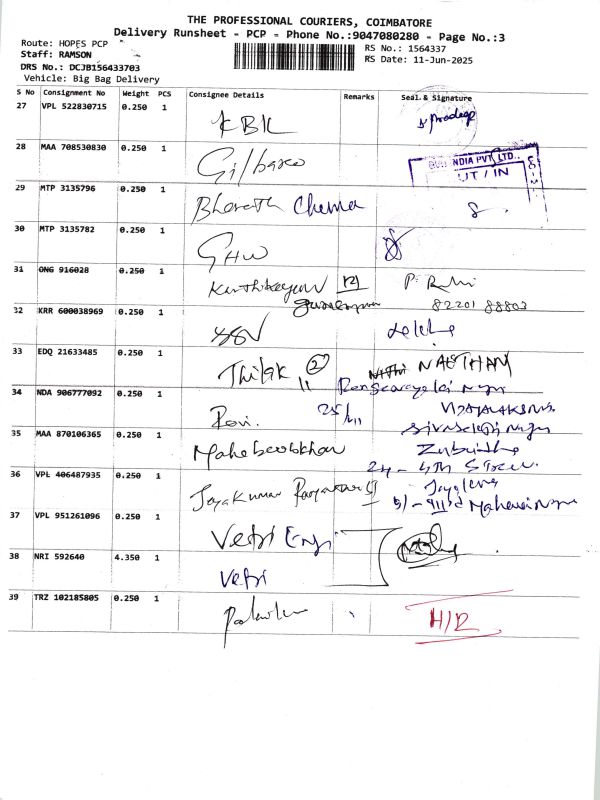 THE PROFESSIONAL COURIERS, COIMBATORE
Delivery Runsheet - PCP - Phone No.:9047080280 - Page No.:3
Route: HOPES PCP
RS No.: 1564337
Staff: RAMSON
RS Date: 11-Jun-2025
DRS No.: DCJB156433703
Vehicle: Big Bag Delivery
S No Consignment No Weight PCS Consignee Details Remarks Seal & Signature
27 VPL 522830715 0.250 1
KBK Pradeep
28 MAA 708530830 0.250 1
Gilbarco
INDIA PVT. LTD.
UT / IN
29 MTP 3135796 0.250 1
Bharath Chema
30 MTP 3135782 0.250 1
GHW
31 ONG 916028 0.250 1
Karthikeyan 121 P.
82201 88803
32 KRR 600038969 0.250 1
SSV
33 EDQ 21633485 0.250 1
Thilak 2 NAETHAN
11
34 NDA 906777092 0.250 1
Ravi. 25/11
35 MAA 870106365 0.250 1
Maheboobkhan
24 - 4th Street.
36 VPL 406487935 0.250 1
Jayakumar
37 VPL 951261096 0.250 1
Vetri Engi
38 NRI 592640 4.350 1
Vetri
39 TRZ 102185805 0.250 1
H/R